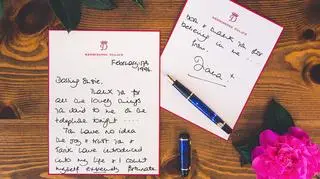 KENSINGTON PALACE
February 7th
1996
Darling Susie,
Thank you for
all the lovely things
you said to me on the
telephone tonight ....
You have no idea
the joy &
have introduced
into my life & I count
myself extremely fortunate
KENSINGTON PALACE
thank you for
believing in me ...
from,
Diana x